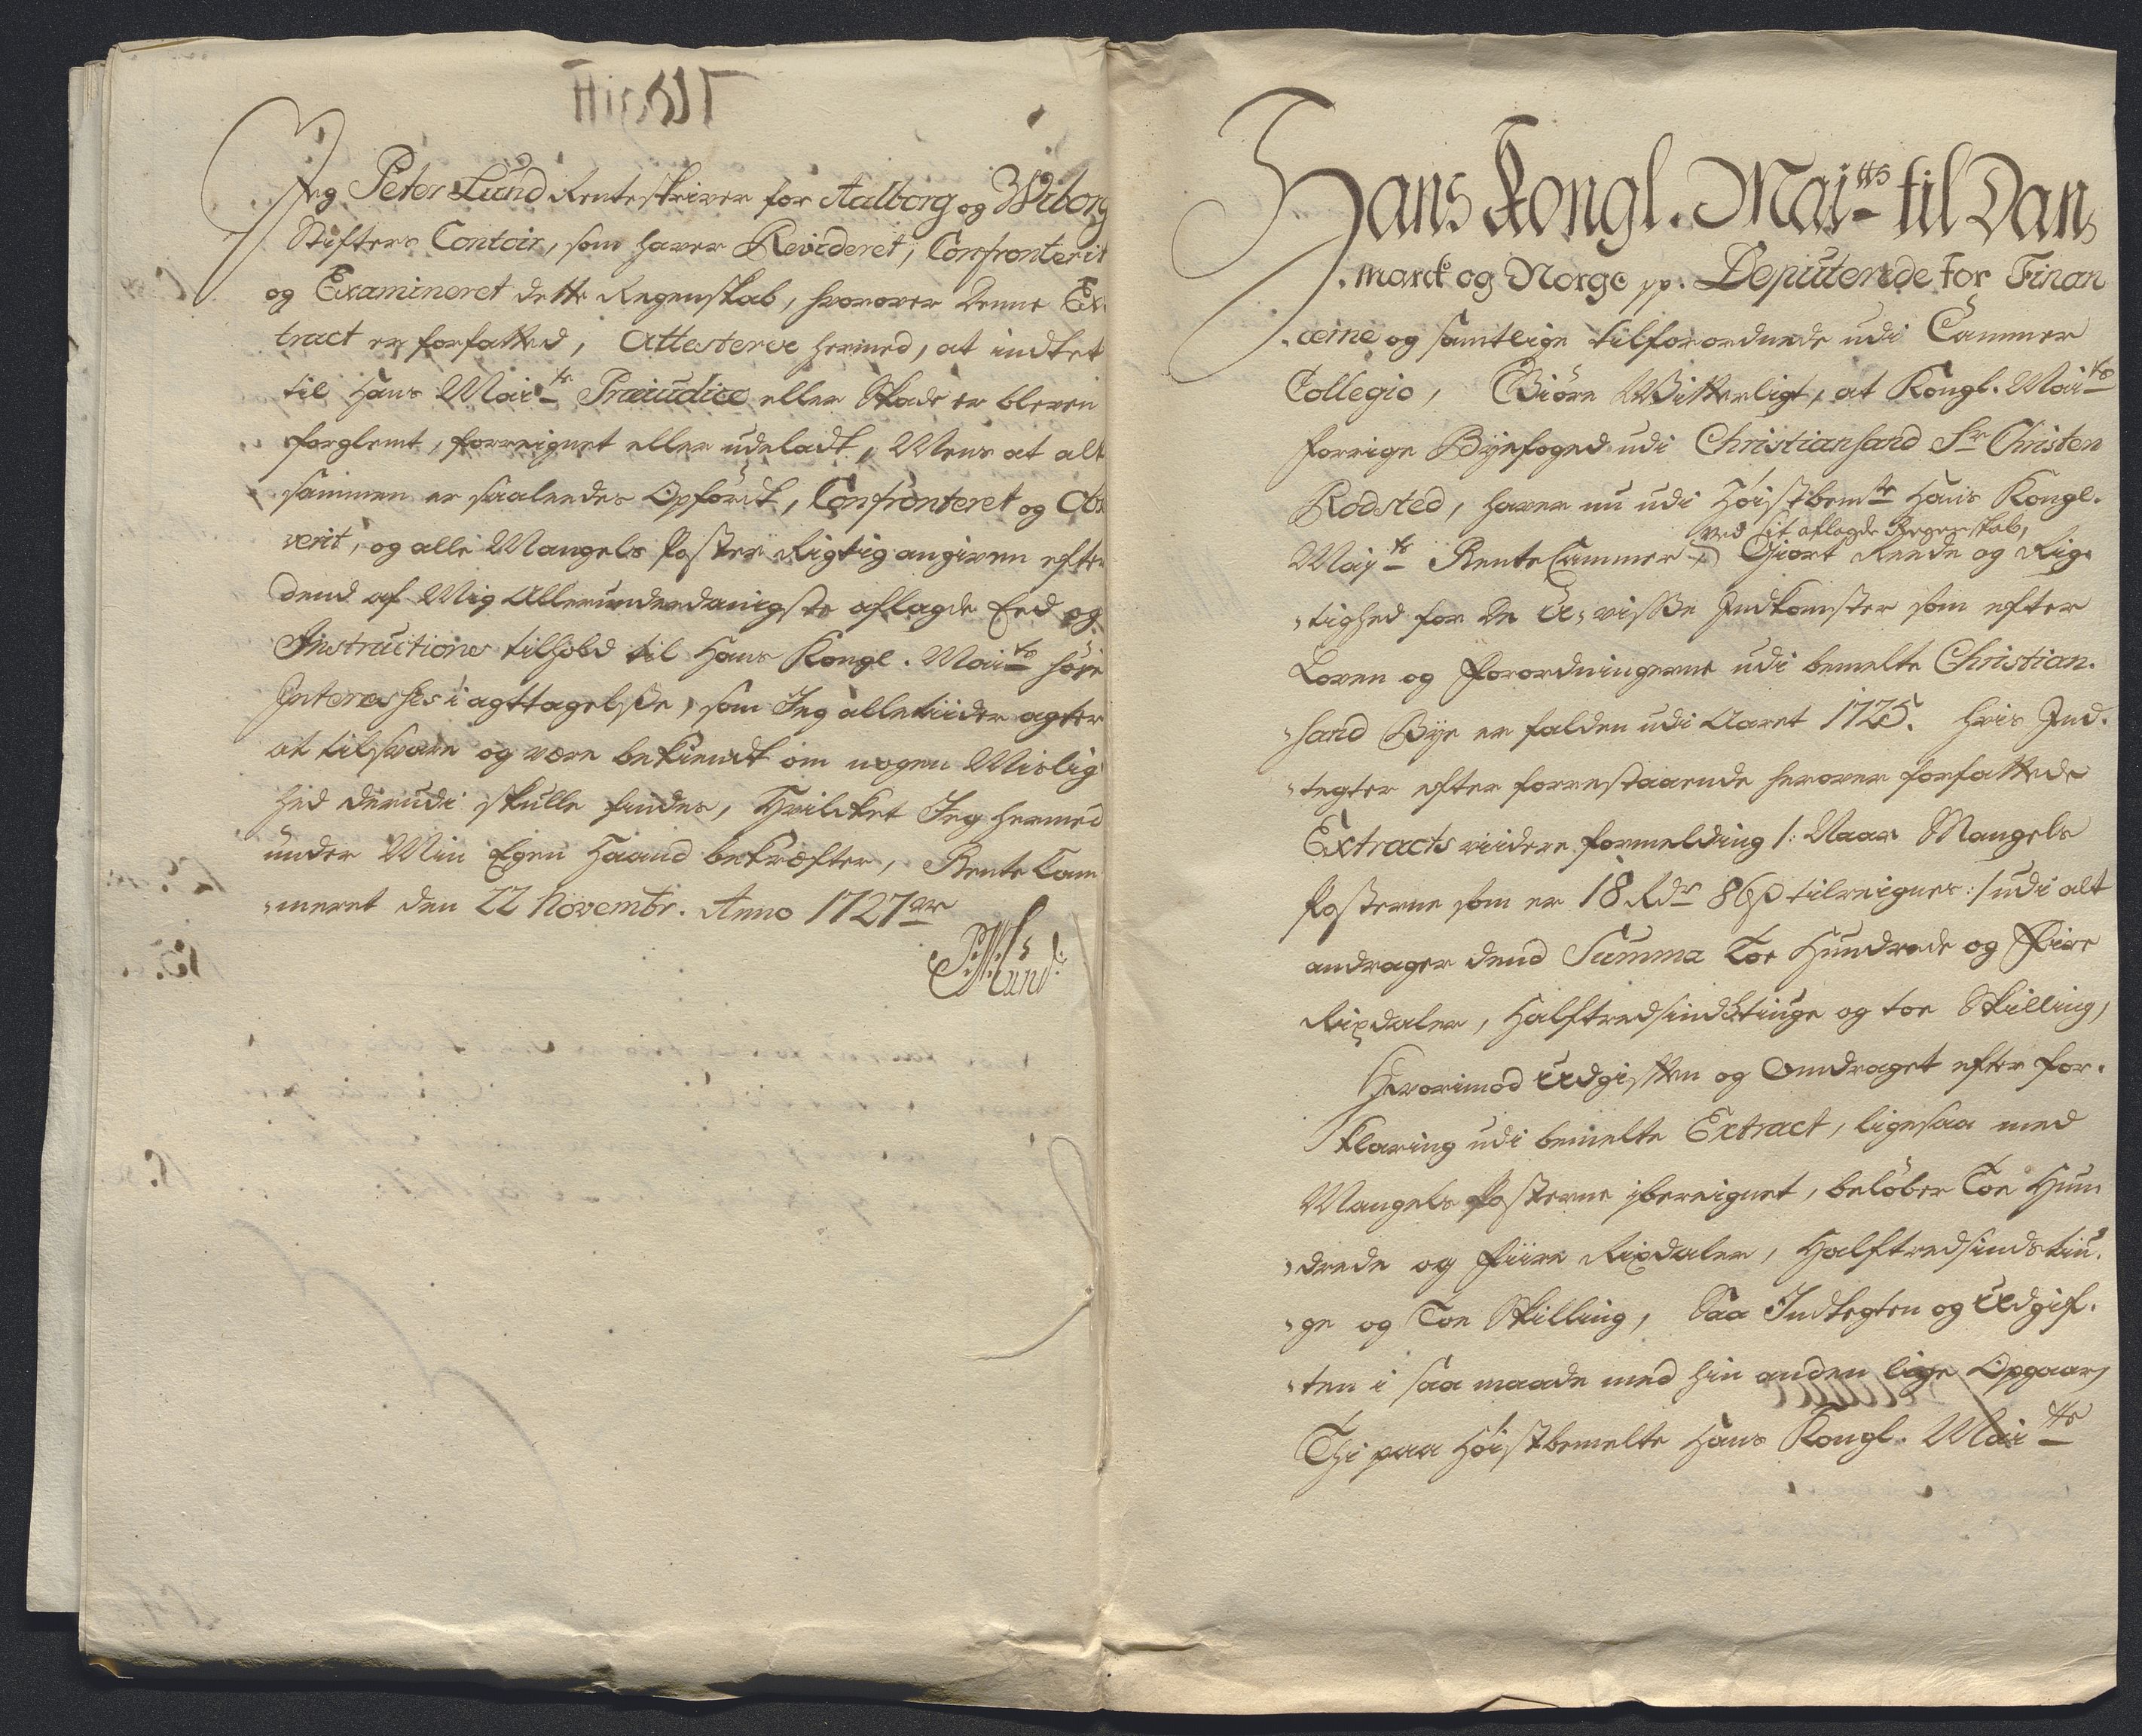 Jeg Peter Lund Renteskriver for Aalborg og Wiborg
Stifters Contoir, som haver Revideret, Confronterit
og Examineret dette Regenskab, hvorover denne Ex
tract er forfatted, Attesterer hermed, at indtet
til Hans Mai:ts Præiudice eller Skade er bleven
forglemt, forreignet eller udeladt, Mens at alt
sammen er saaledes Opfördt, Confronteret og Ob
verit, og alle Mangels Poster Rigtig angiven efter
dend af Mig Allerunderdanigste aflagde Eed og
Instructions tilhold til Hans Kongl. Mai:ts höje
Interesses i agttagelsse, som Jeg alletiider agter
at tilsvare og være bekiendt om nogen Mislig
hed derudi skulle findes, Hvilcket Jeg hermed
under Min Egen Haand bekræfter, Rente Cam
-meret den 22 Novembr. Anno 1727
P Lund
Hans Kongl. Mai:tts til Dan
marck og Norge pp. Deputerede for Finan
cerne og samtlige tilforordnede udi Cammer
Collegio, Giöre Witterligt, at Kongl. Mai:ts
forrige Byefoged udi Christiansand Sr Christen
Rodsted, haver nu udi Höistbem:te Hans Kongl.
ved sit aflagde Regenskab,
May:ts Rente Cammer Giort Reede og Rig-
-tighed for de U-visse Indkomster som efter
Loven og Forordningerne udi bemelte Christian-
-sand Bye er falden udi Aaret 1725. hvis Ind-
-tegter efter forrestaaende herover forfattede
Extracts viidere formelding /: Naar Mangels
Posterne som er 18 Rdr 86 ß tilreignes :/ udi alt
andrager dend Summa Toe Hundrede og Fiire
Rixdaler, Halftredsindstiuge og toe Skilling,
Hvorimod Udgiften og Omdraget efter for-
klaring udi bemelte Extract, ligesaa med
Mangels Posterne ibereignet, belöber Toe Hun
-drede og Fiire Rixdaler, Halftredsindstiu-
-ge og Toe Skilling, Saa Indtegten og Udgif-
-ten i saa maade med hin anden lige Opgaar,
Thi paa Höistbemelte Hans Kongl. Mai:tts